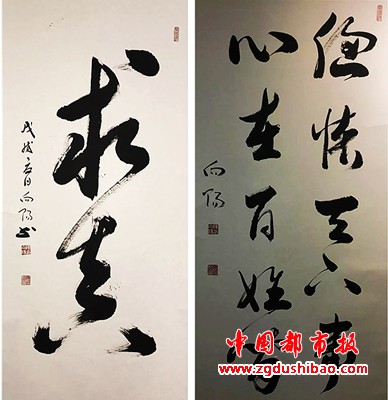 求真
戊戌
向阳书
怀天下事
心在百姓家
向阳
中国都市报
www.zgdushibao.com